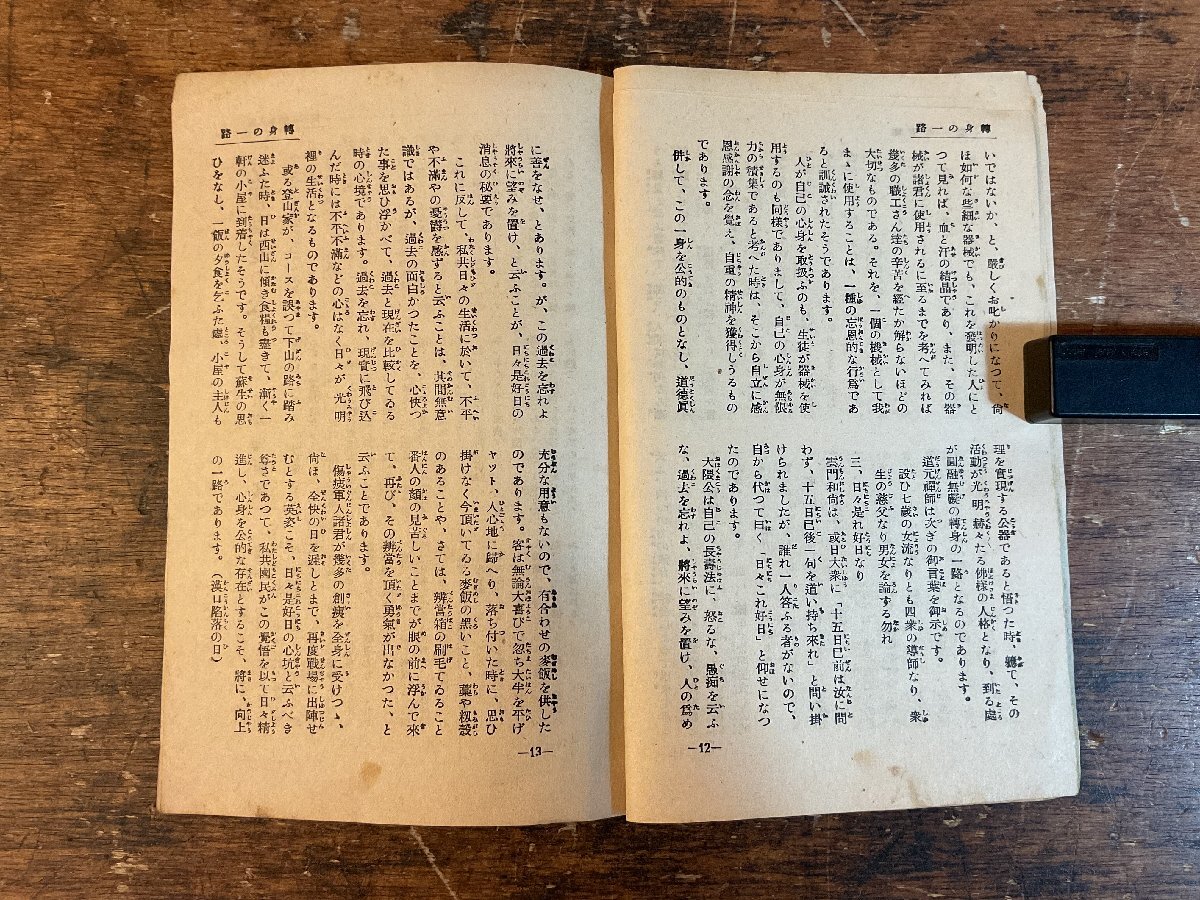 轉身の一路
いではないか、と、嚴しくお叱かりになつて、尙
ほ如何な些細な器械でも、これを發明した人にと
つて見れば、血と汗の結晶であり、また、その器
械が諸君に使用されるに至るまでを考へてみれば
幾多の職工さん達の辛苦を經たか解らないほどの
大切なものである。それを、一個の機械として我
まゝに使用することは、一種の忘恩的な行爲であ
ると訓誡されたそうであります。
人が自己の心身を取扱ふのも、生徒が器械を使
用するのも同樣でありまして、自己の心身が無限
力の積集であると考へた時は、そこから自立に感
恩感謝の念を覺え、自重の精神を獲得しうるもの
であります。
併して、この一身を公的のものとなし、道德眞
理を實現する公器であると悟つた時、軈て、その
活動が光明赫々たる佛樣の人格となり、到る處
が圓融無礙の轉身の一路となるのであります。
道元禪師は次ぎの御言葉を御示です。
設ひ七歲の女流なりとも四衆の導師なり、衆
生の慈父なり男女を論する勿れ
三、日々是れ好日なり
雲門和尙は、或日大衆に「十五日已前は汝に問
わず、十五日已後一句を道い持ち來れ」と問い掛
けられましたが、誰れ一人答ふる者がないので、
自から代つて曰く「日々これ好日」と仰せになつ
たのであります。
大隈公は自己の長壽法に、怒るな、愚痴を云ふ
な、過去を忘れよ、將來に望みを置け、人の爲め
—12—
轉身の一路
に善をなせ、とあります。が、この過去を忘れよ
將來に望みを置け、と云ふことが、日々是好日の
消息の秘要であります。
これに反して、私共日々の生活に於いて、不平
や不滿や憂鬱を感ずると云ふことは、其間無意
識ではあるが、過去の面白かつたことを、心快つ
た事を思ひ浮かべて、過去と現在を比較してゐる
時の心境であります。過去を忘れ、現實に飛び込
んだ時には不平不滿などの心はなく日々が光明
裡の生活となるものであります。
或る登山家が、コースを誤つて下山の路に踏み
迷ふた時、日は西山に傾き食糧も盡きて、漸く一
軒の小屋に到着したそうです。そうして蘇生の思
ひをなし、一飯の夕食を乞ふた處、小屋の主人も
充分な用意もないので、有合わせの麥飯を併した
のであります。客は無論大喜びで忽ち大半を平げ
ャット、人心地に歸へり、落ち付いた時に、思ひ
掛けなく今頂いてゐる麥飯の黑いこと、藁や籾殼
のあることや、さては、辨當箱の刷毛てゐること
番人の顏の見苦しいことまでが眼の前に浮んで來
て、再び、その辨當を頂く勇氣が出なかつた、と
云ふことであります。
傷痍軍人諸君が幾多の創痍を全身に受けつゝ、
尙ほ、全快の日を遲しとまで、再度戰場に出陣せ
むとする英姿こそ、日々是好日の心境と云ふべき
であつて、私共國民がこの覺悟を以て日々精
進し、心身を公的な存在とするこそ、將に、向上
の一路であります。(漢口陷落の日)
—13—